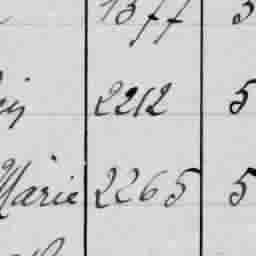 1377 5
2212 5
Marie 2265 5